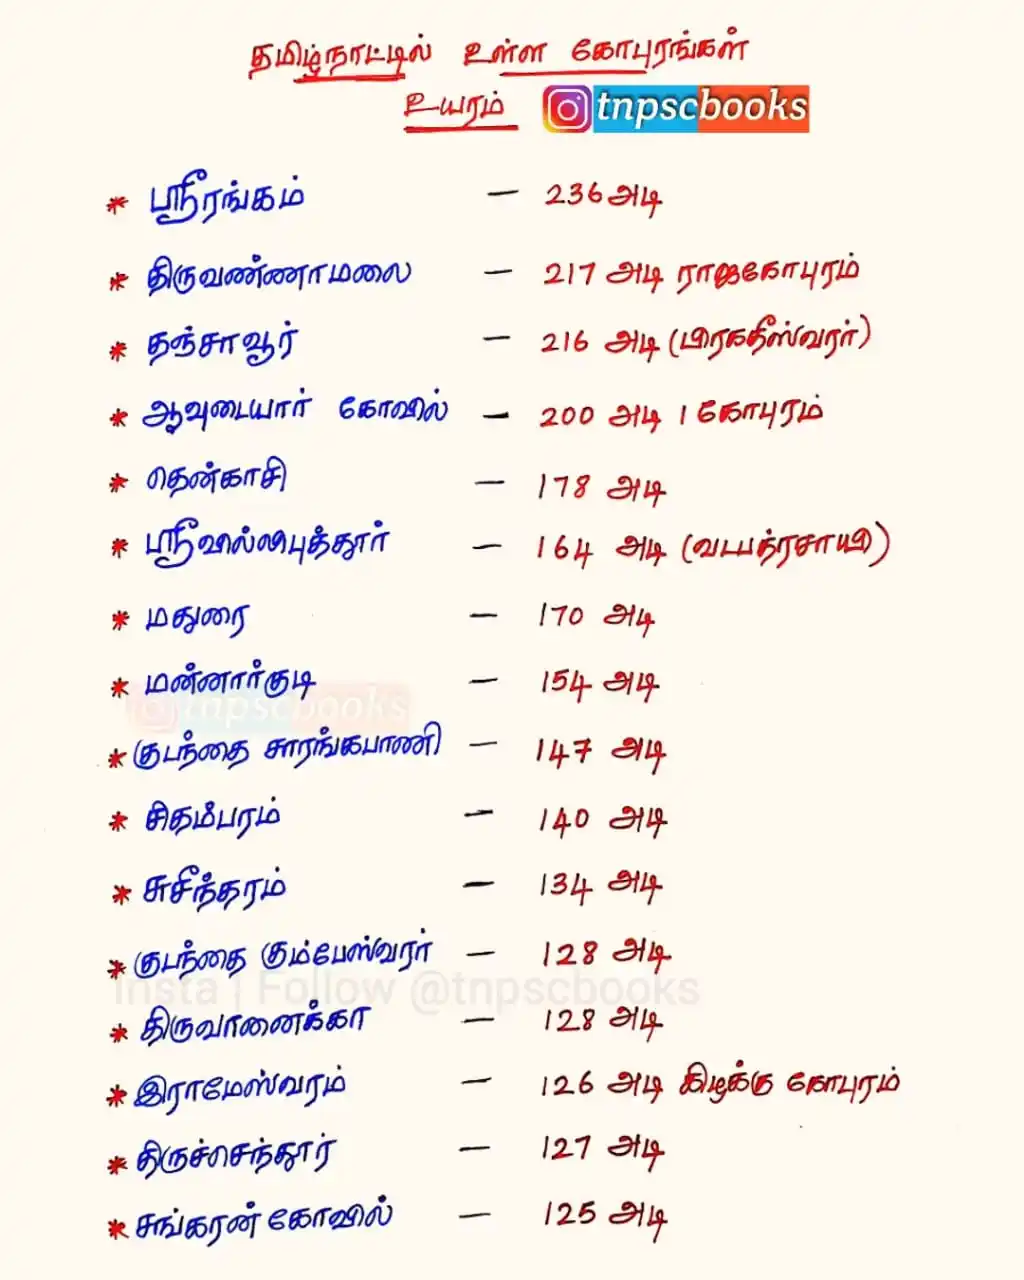 தமிழ்நாட்டில் உள்ள கோபுரங்கள்
உயரம் tnpscbooks
* ஸ்ரீரங்கம் — 236 அடி
* திருவண்ணாமலை — 217 அடி ராஜகோபுரம்
* தஞ்சாவூர் — 216 அடி (பிரகதீஸ்வரர்)
* ஆவுடையார் கோவில் — 200 அடி 1 கோபுரம்
* தென்காசி — 178 அடி
* ஸ்ரீவில்லிபுத்தூர் — 164 அடி (வடபத்ரசாயி)
* மதுரை — 170 அடி
* மன்னார்குடி — 154 அடி
tnpscbooks
* குடந்தை சாரங்கபாணி — 147 அடி
* சிதம்பரம் — 140 அடி
* சுசீந்தரம் — 134 அடி
* குடந்தை கும்பேஸ்வரர் — 128 அடி
Insta | Follow @tnpscbooks
* திருவானைக்கா — 128 அடி
* இராமேஸ்வரம் — 126 அடி கிழக்கு கோபுரம்
* திருச்செந்தூர் — 127 அடி
* சங்கரன் கோவில் — 125 அடி